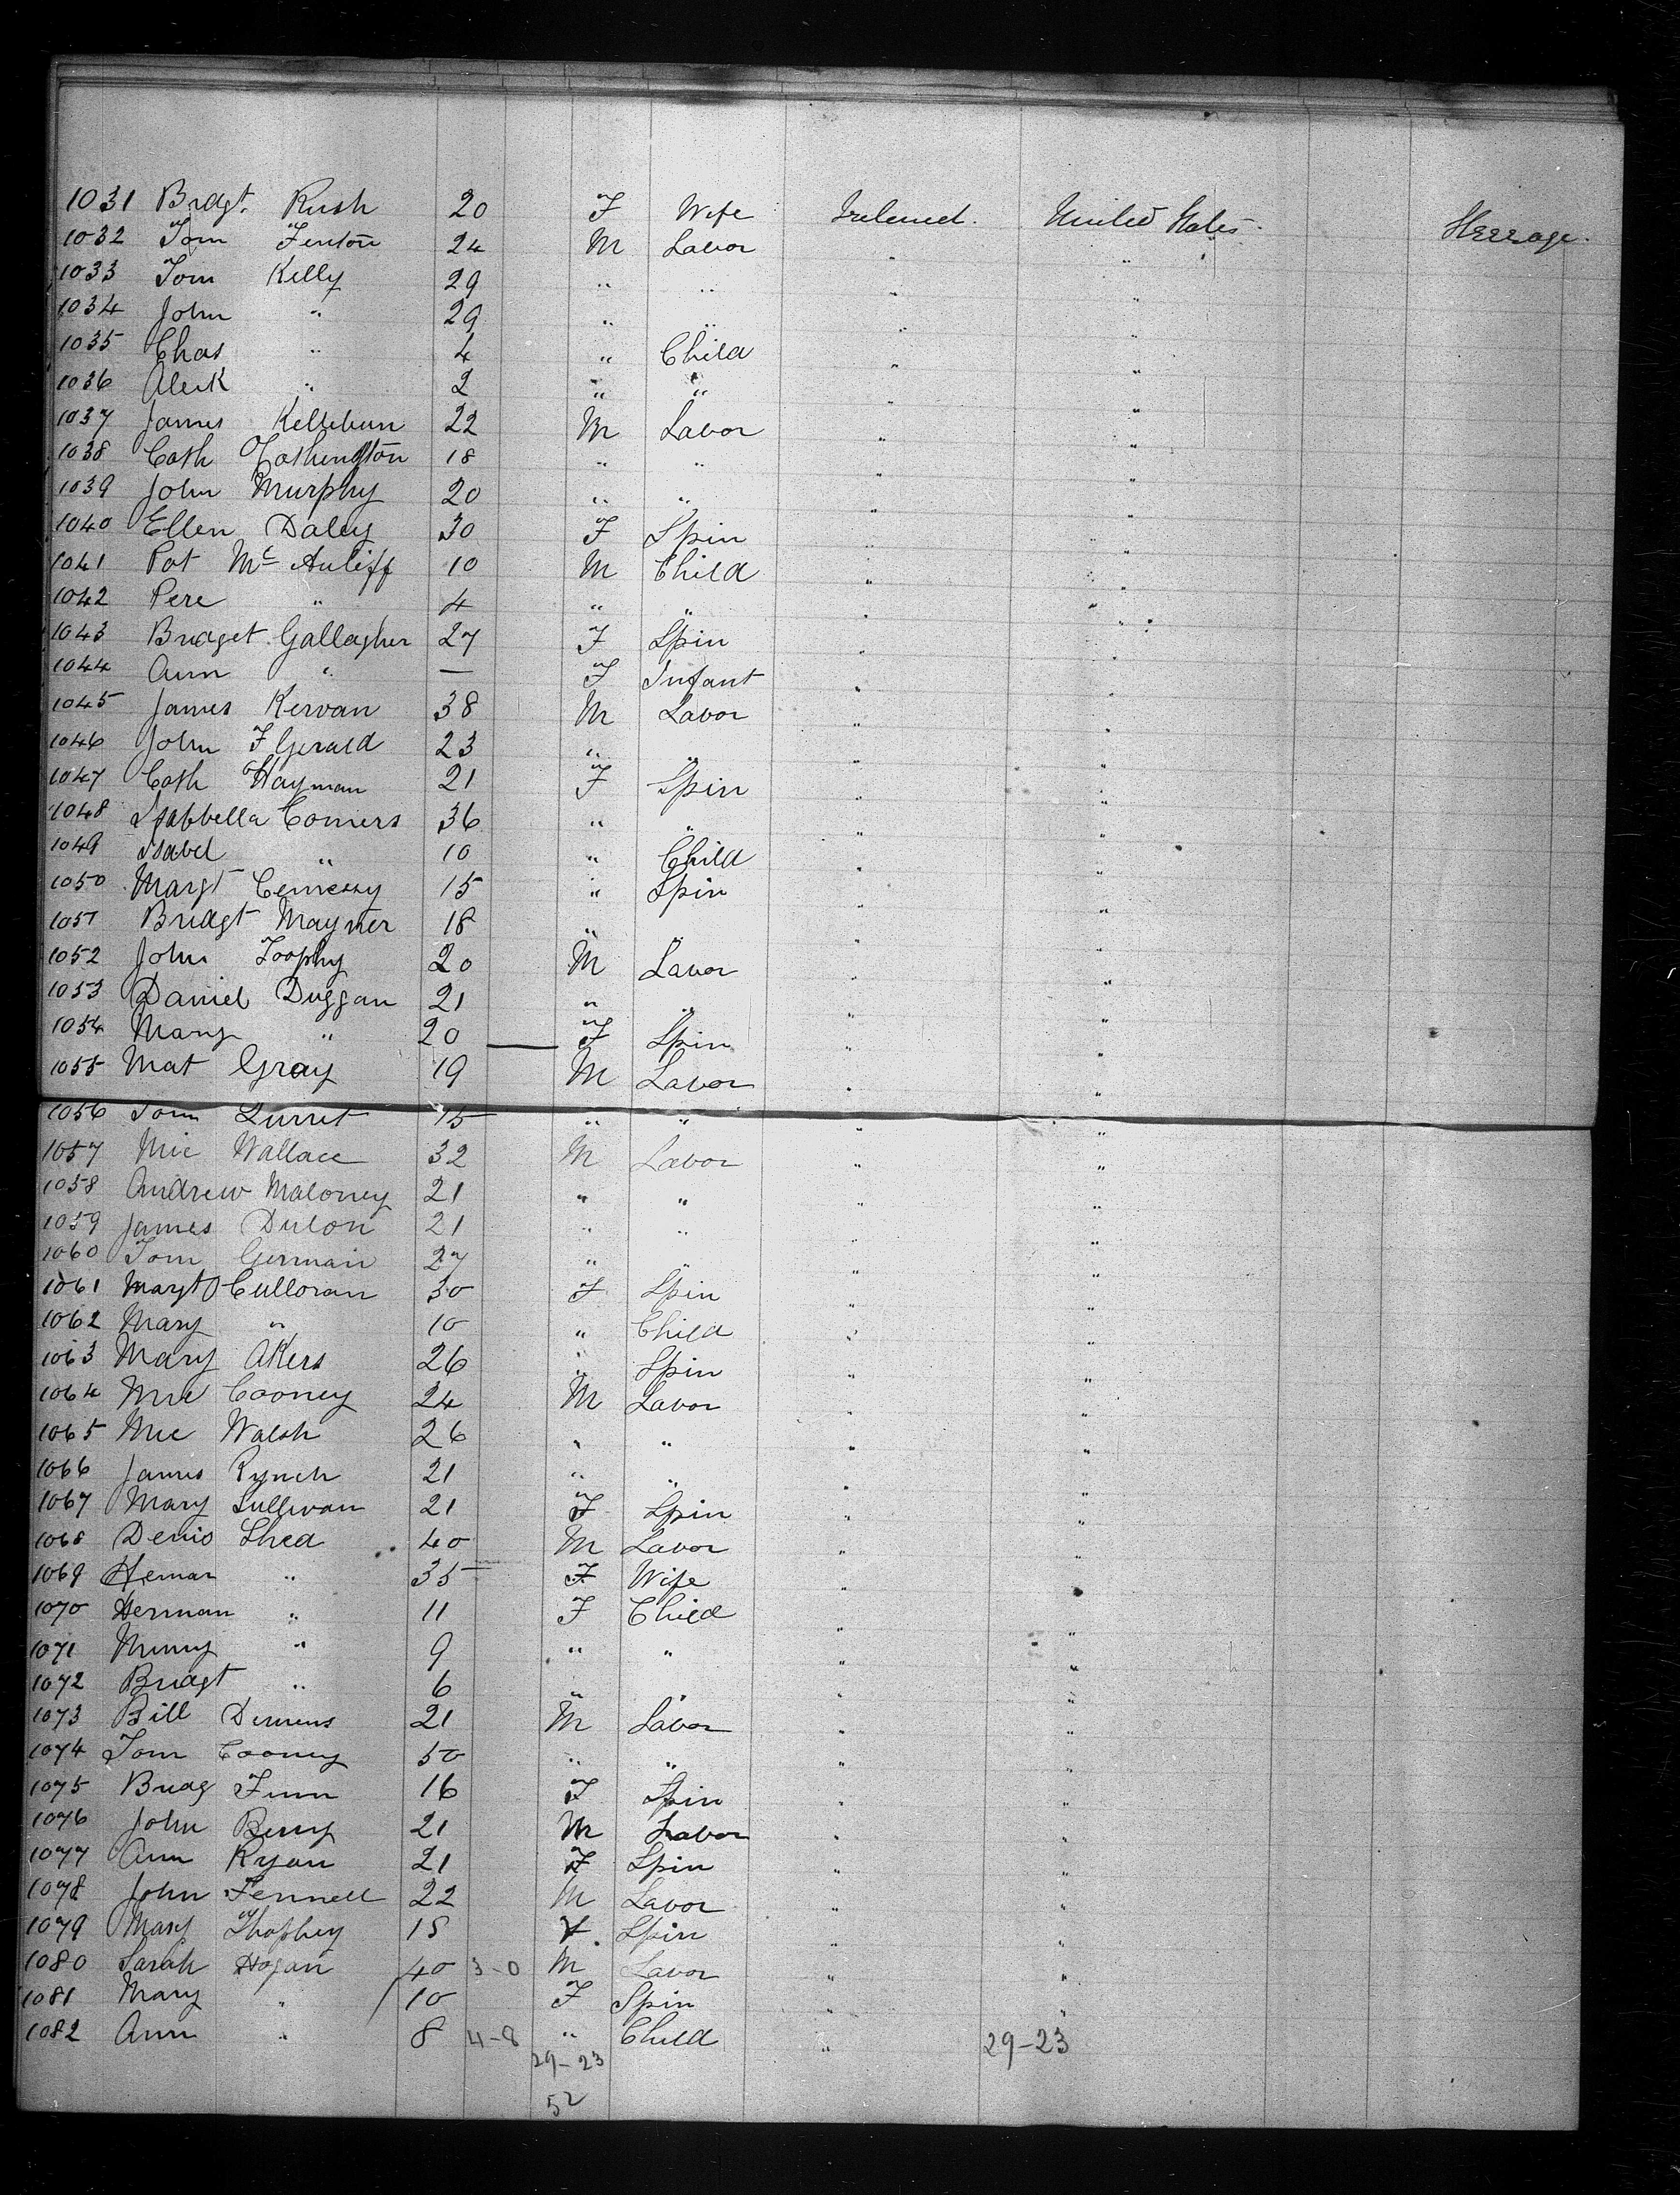 1031 Bridgt. Rush 20 F Wife Ireland. United States. Steerage.
1032 Tom Fenton 24 M Labor " "
1033 Tom Kelly 29 " " " "
1034 John " 29 " " " "
1035 Chas " 4 " Child " "
1036 Aleck " 2 " " " "
1037 James 22 M Labor " "
1038 Cath 18 " " " "
1039 John Murphy 20 " " " "
1040 Ellen Daley 30 F Spin " "
1041 Pat Mc Auliff 10 M Child " "
1042 Pere " 4 " " " "
1043 Bridget Gallagher 27 F Spin " "
1044 Ann " — F Infant " "
1045 James Kervan 38 M Labor " "
1046 John F Gerald 23 " " " "
1047 Cath Hayman 21 F Spin " "
1048 Isabbella Comers 36 " " " "
1049 Isabel " 10 " Child " "
1050 Margt 15 " Spin " "
1051 Bridgt Mayner 18 " " " "
1052 John Toophy 20 M Labor " "
1053 Daniel Duggan 21 " " " "
1054 Mary " 20 — F Spin " "
1055 Mat Gray 19 M Labor " "
1056 Tom 15 " " " "
1057 Mic Wallace 32 M Labor " "
1058 Andrew Maloney 21 " " " "
1059 James Dillon 21 " " " "
1060 Tom German 27 " " " "
1061 Margt O Culloran 30 F Spin " "
1062 Mary " 10 " Child " "
1063 Mary Akers 26 " Spin " "
1064 Mic Cooney 24 M Labor " "
1065 Mic Walsh 26 " " " "
1066 James Rynch 21 " " " "
1067 Mary Sullivan 21 F Spin " "
1068 Denis Shea 40 M Labor " "
1069 " 35 F Wife " "
1070 Herman " 11 F Child " "
1071 " 9 " " " "
1072 Bridgt " 6 " " " "
1073 Bill 21 M Labor " "
1074 Tom Cooney 50 " " " "
1075 Bridg Finn 16 F Spin " "
1076 John Berry 21 M Labor " "
1077 Ann Ryan 21 F Spin " "
1078 John Fennell 22 M Labor " "
1079 Mary 18 F. Spin " "
1080 Sarah Hogan 40 3-0 M Labor " "
1081 Mary " 10 F Spin " "
1082 Ann " 8 4-8 " Child " 29-23
29-23
52